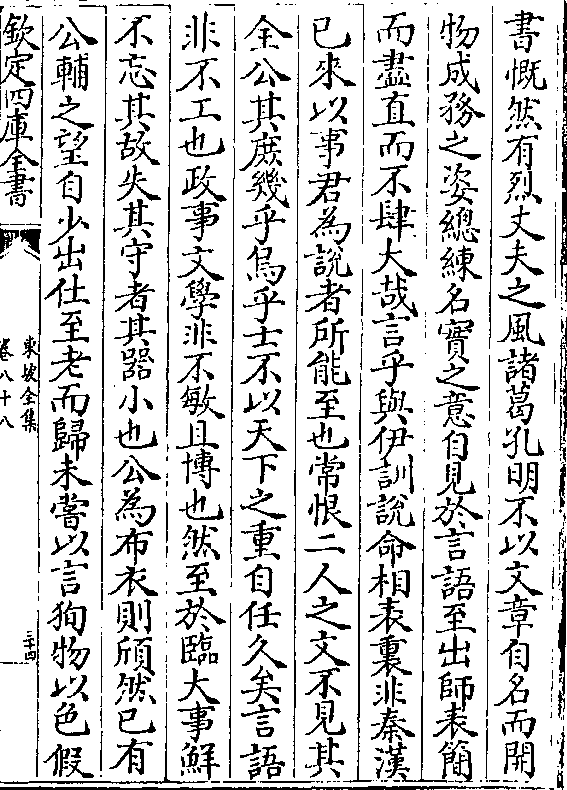 書慨然有烈丈夫之風諸葛孔明不以文章自名而開
物成務之姿總練名實之意自見於言語至出師表簡
而盡直而不肆大哉言乎與伊訓說命相表裏非秦漢
已來以事君為說者所能至也常恨二人之文不見其
全公其庶幾乎烏乎士不以天下之重自任久矣言語
非不工也政事文學非不敏且博也然至於臨大事鮮
不忘其故失其守者其器小也公為布衣則頎然已有
公輔之望自少出仕至老而歸未嘗以言狥物以色假
欽定四庫全書
東坡全集
卷八十八
三四